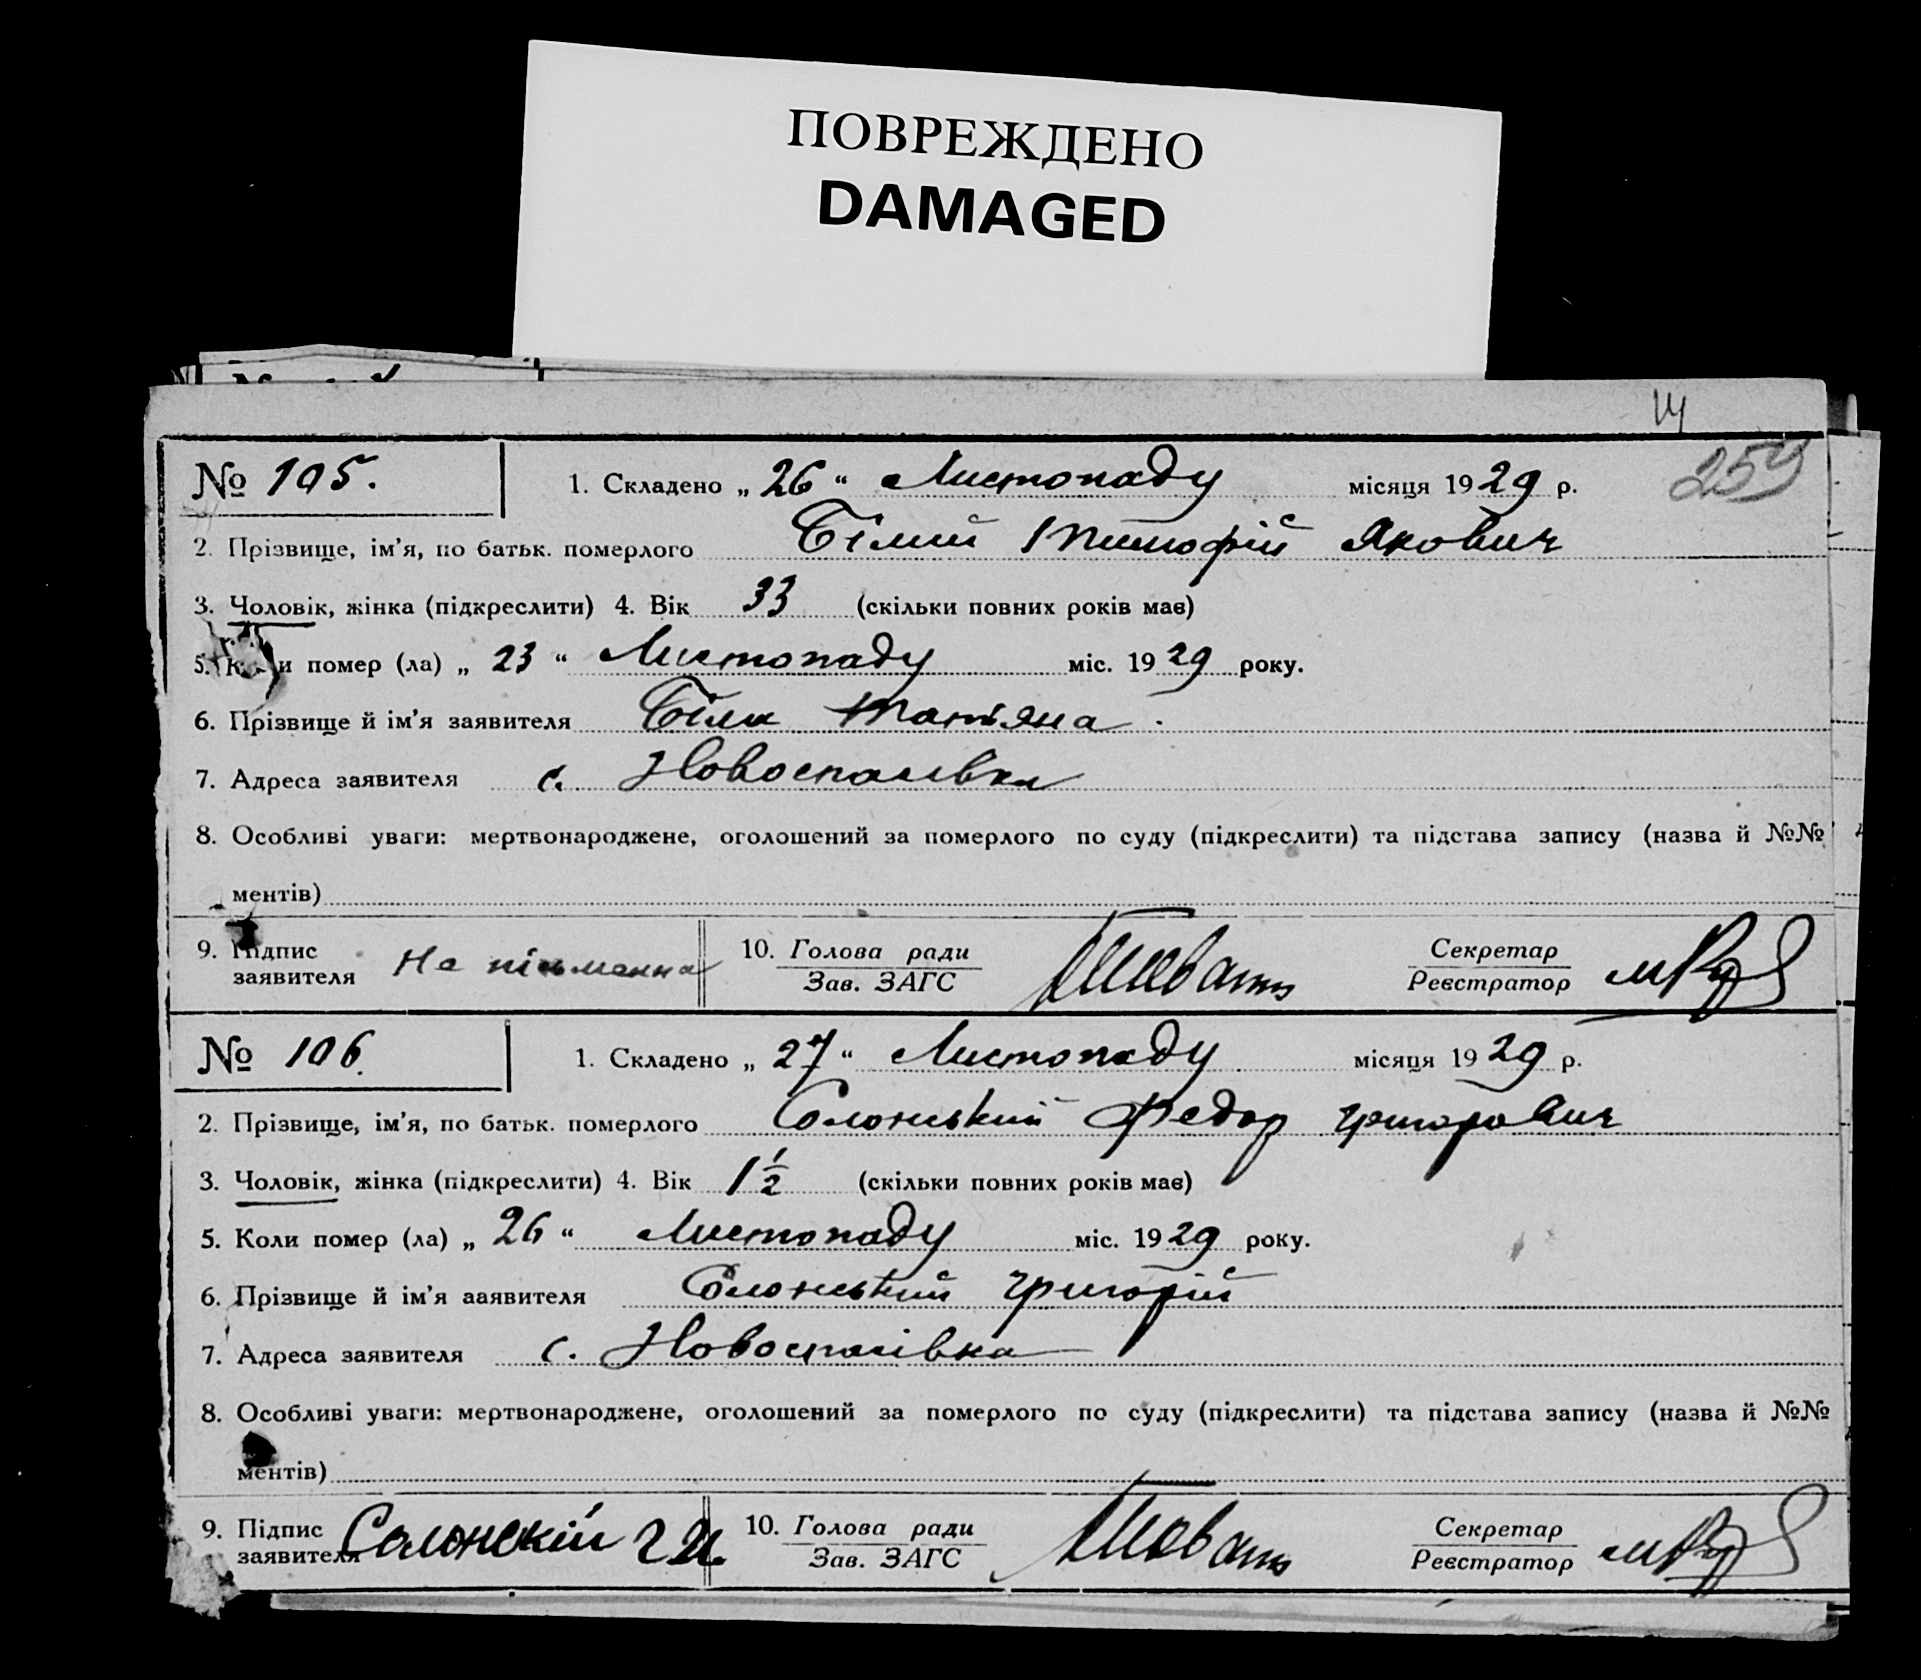 ПОВРЕЖДЕНО
DAMAGED
259
№ 105. 1. Складено „ 26 “ Листопаду місяця 1929 р.
2. Прізвище, ім'я, по батьк. померлого Білий Тимофій Якович
3. Чоловік, жінка (підкреслити) 4. Вік 33 (скільки повних років мав)
5. Коли помер (ла) „ 23 “ Листопаду міс. 1929 року.
6. Прізвище й ім'я заявителя Біла Татьяна.
7. Адреса заявителя с. Новоспасівка
8. Особливі уваги: мертвонароджене, оголошений за померлого по суду (підкреслити) та підстава запису (назва й №№
ментів)
9. Підпис заявителя Не письменна 10. Голова ради Зав. ЗАГС Секретар Реєстратор
№ 106. 1. Складено „ 27 “ Листопаду місяця 1929 р.
2. Прізвище, ім'я, по батьк. померлого Солонський Федор Григорович
3. Чоловік, жінка (підкреслити) 4. Вік 1 1/2 (скільки повних років мав)
5. Коли помер (ла) „ 26 “ Листопаду міс. 1929 року.
6. Прізвище й ім'я ааявителя Солонський Григорій
7. Адреса заявителя с. Новоспасівка
8. Особливі уваги: мертвонароджене, оголошений за померлого по суду (підкреслити) та підстава запису (назва й №№
ментів)
9. Підпис заявителя Солонскій 10. Голова ради Зав. ЗАГС Секретар Реєстратор